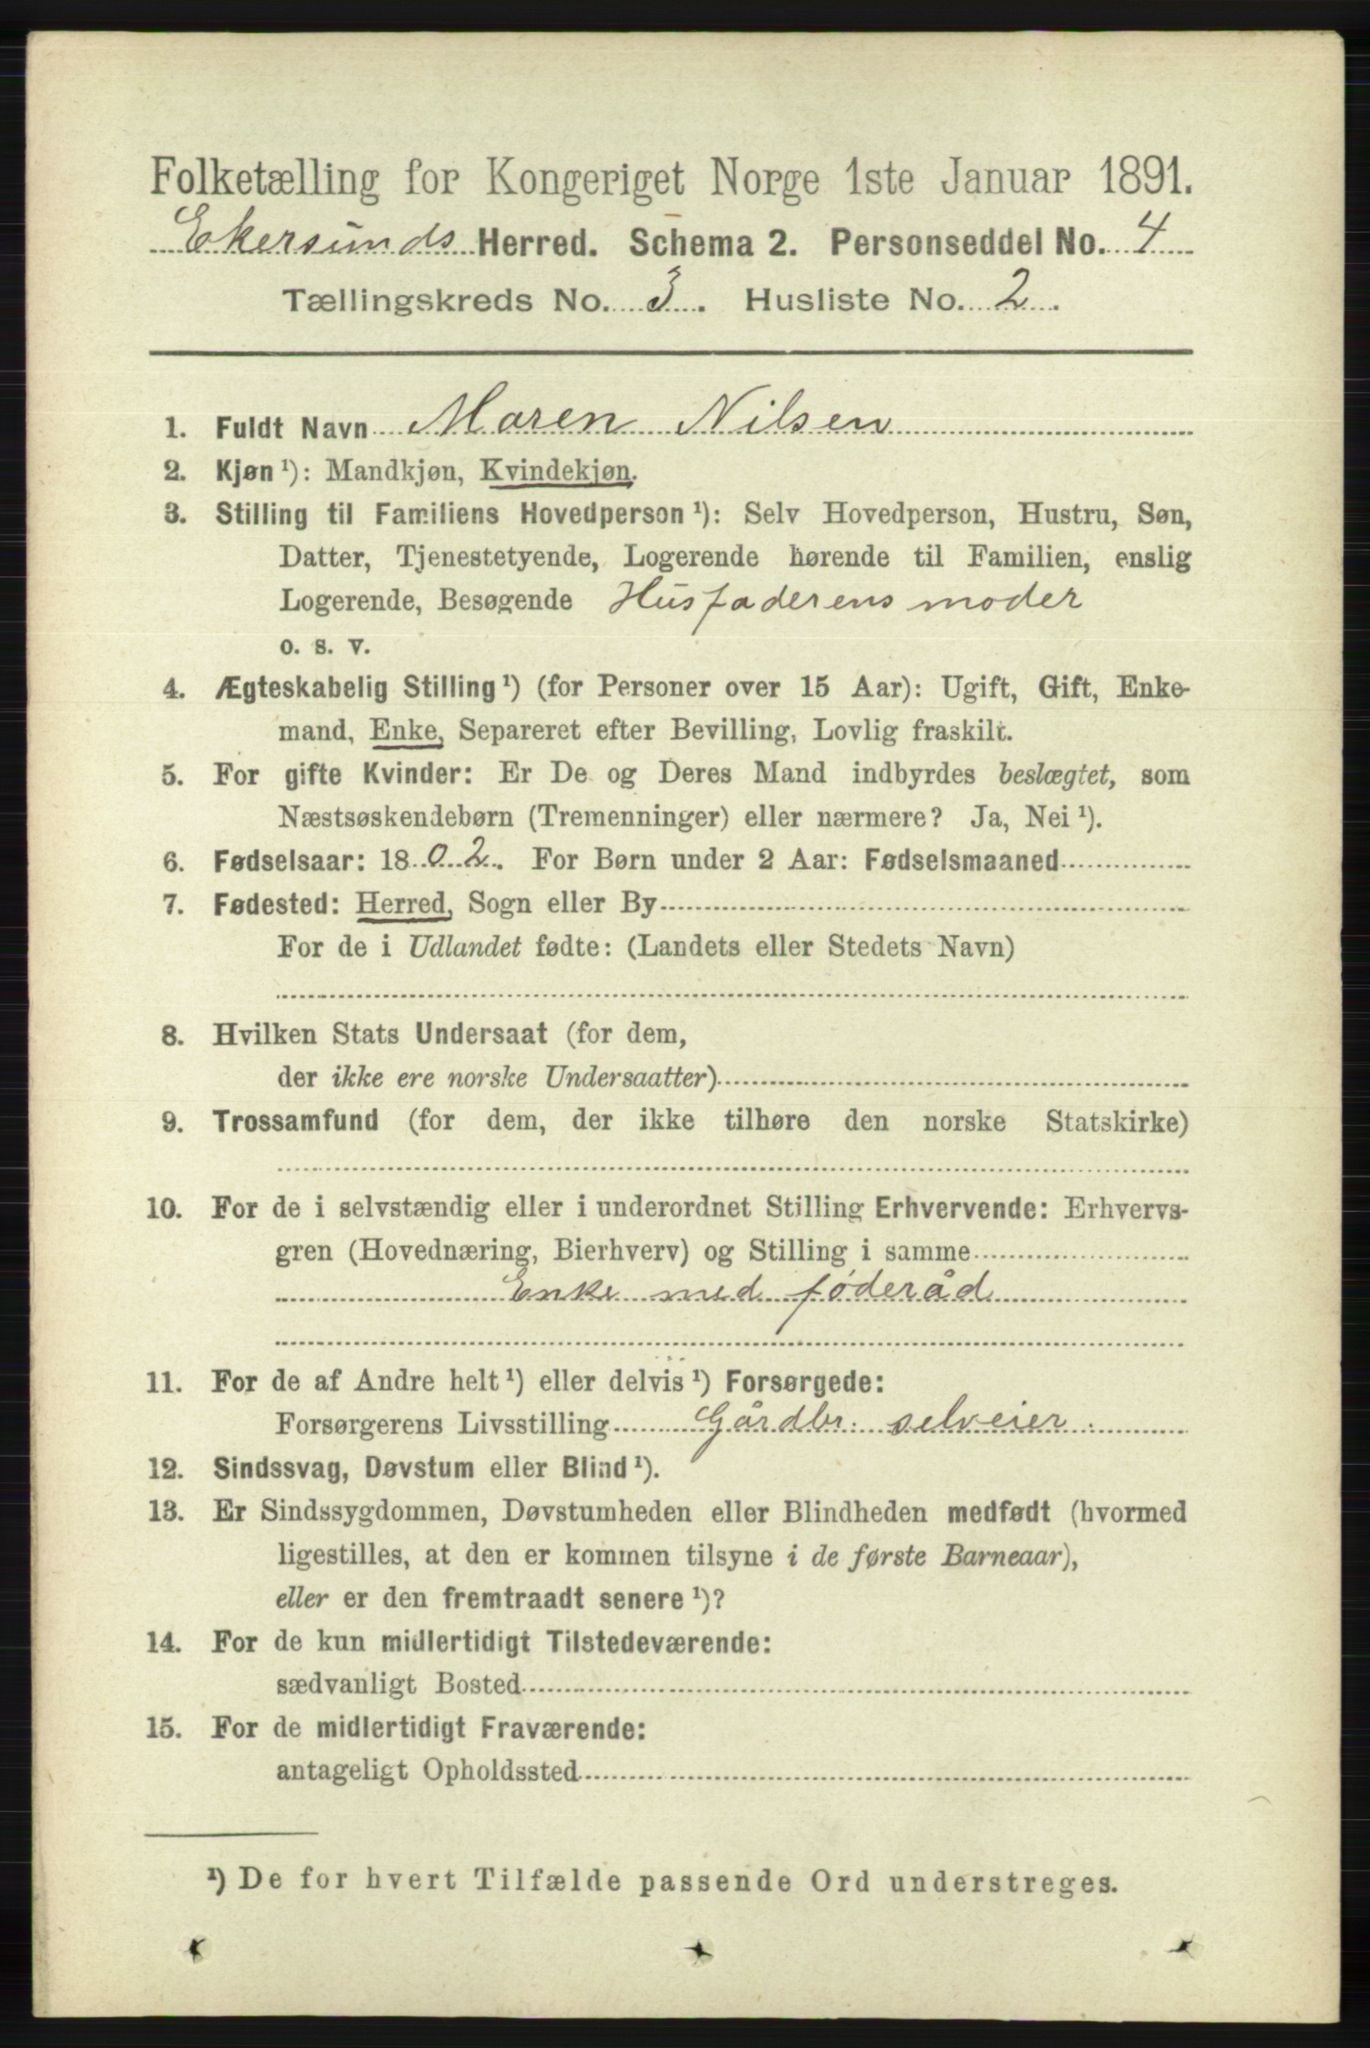 Folketælling for Kongeriget Norge 1ste Januar 1891.
Ekersunds Herred. Schema 2. Personseddel No. 4
Tællingskreds No. 3. Husliste No. 2.
1. Fuldt Navn Maren Nilsen
2. Kjøn ¹): Mandkjøn, Kvindekjøn.
3. Stilling til Familiens Hovedperson ¹): Selv Hovedperson, Hustru, Søn,
Datter, Tjenestetyende, Logerende hørende til Familien, enslig
Logerende, Besøgende Husfaderens moder
o. s. v.
4. Ægteskabelig Stilling ¹) (for Personer over 15 Aar): Ugift, Gift, Enke-
mand, Enke, Separeret efter Bevilling, Lovlig fraskilt.
5. For gifte Kvinder: Er De og Deres Mand indbyrdes beslægtet, som
Næstsøskendebørn (Tremenninger) eller nærmere? Ja, Nei ¹).
6. Fødselsaar: 1802. For Børn under 2 Aar: Fødselsmaaned
7. Fødested: Herred, Sogn eller By
For de i Udlandet fødte: (Landets eller Stedets Navn)
8. Hvilken Stats Undersaat (for dem,
der ikke ere norske Undersaatter)
9. Trossamfund (for dem, der ikke tilhøre den norske Statskirke)
10. For de i selvstændig eller i underordnet Stilling Erhvervende: Erhvervs-
gren (Hovednæring, Bierhverv) og Stilling i samme
Enke med føderåd
11. For de af Andre helt ¹) eller delvis ¹) Forsørgede:
Forsørgerens Livsstilling Gårdbr. selveier.
12. Sindssvag, Døvstum eller Blind ¹).
13. Er Sindssygdommen, Døvstumheden eller Blindheden medfødt (hvormed
ligestilles, at den er kommen tilsyne i de første Barneaar),
eller er den fremtraadt senere ¹)?
14. For de kun midlertidigt Tilstedeværende:
sædvanligt Bosted
15. For de midlertidigt Fraværende:
antageligt Opholdssted
¹) De for hvert Tilfælde passende Ord understreges.